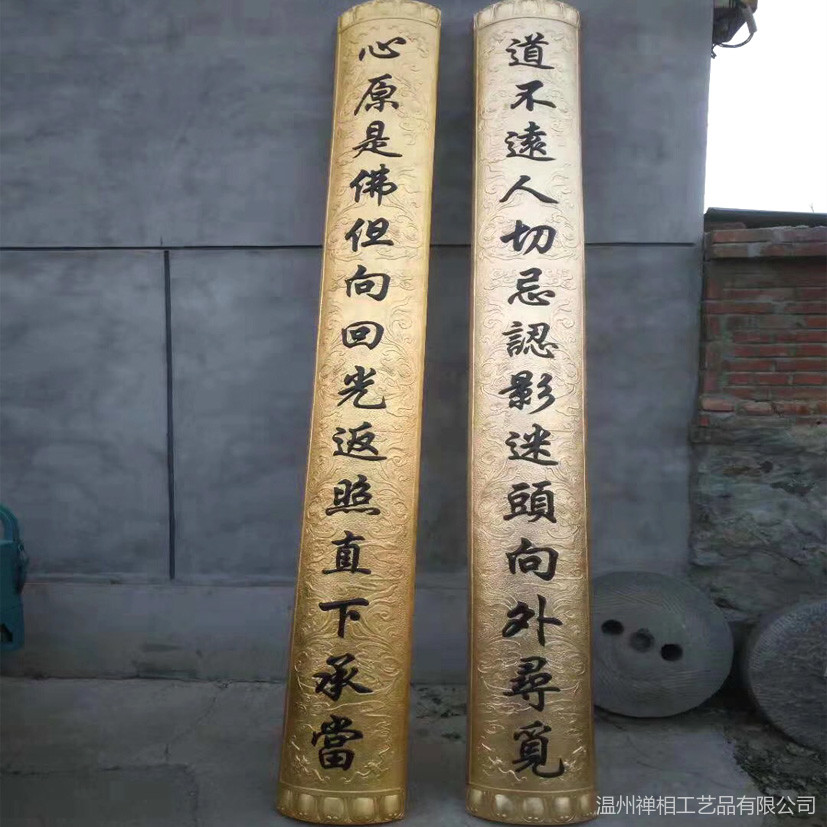 道不遠人切忌認影迷頭向外尋覓
心原是佛但向回光返照直下承當
温州禅相工艺品有限公司